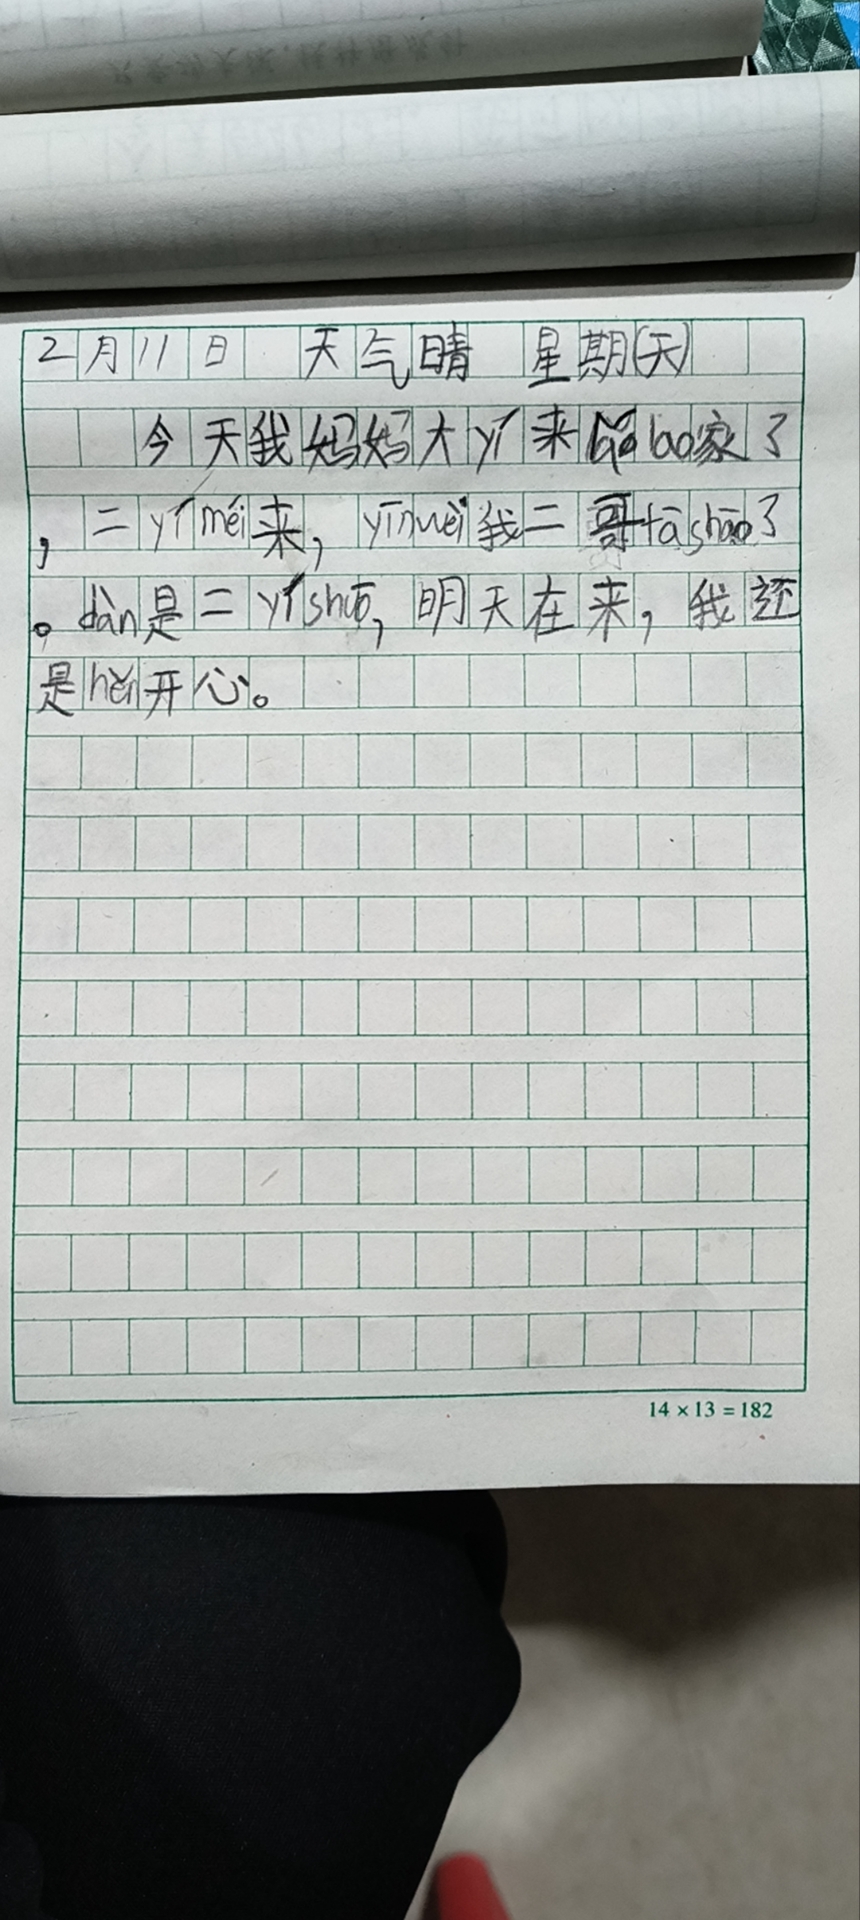 2月11日 天气晴 星期(天)
今天我妈妈大yí来 bo家了
，二yí méi来，yīnwèi我二哥fāshāo了
。dàn是二yí shuō，明天在来，我还
是hěn开心。
14×13=182